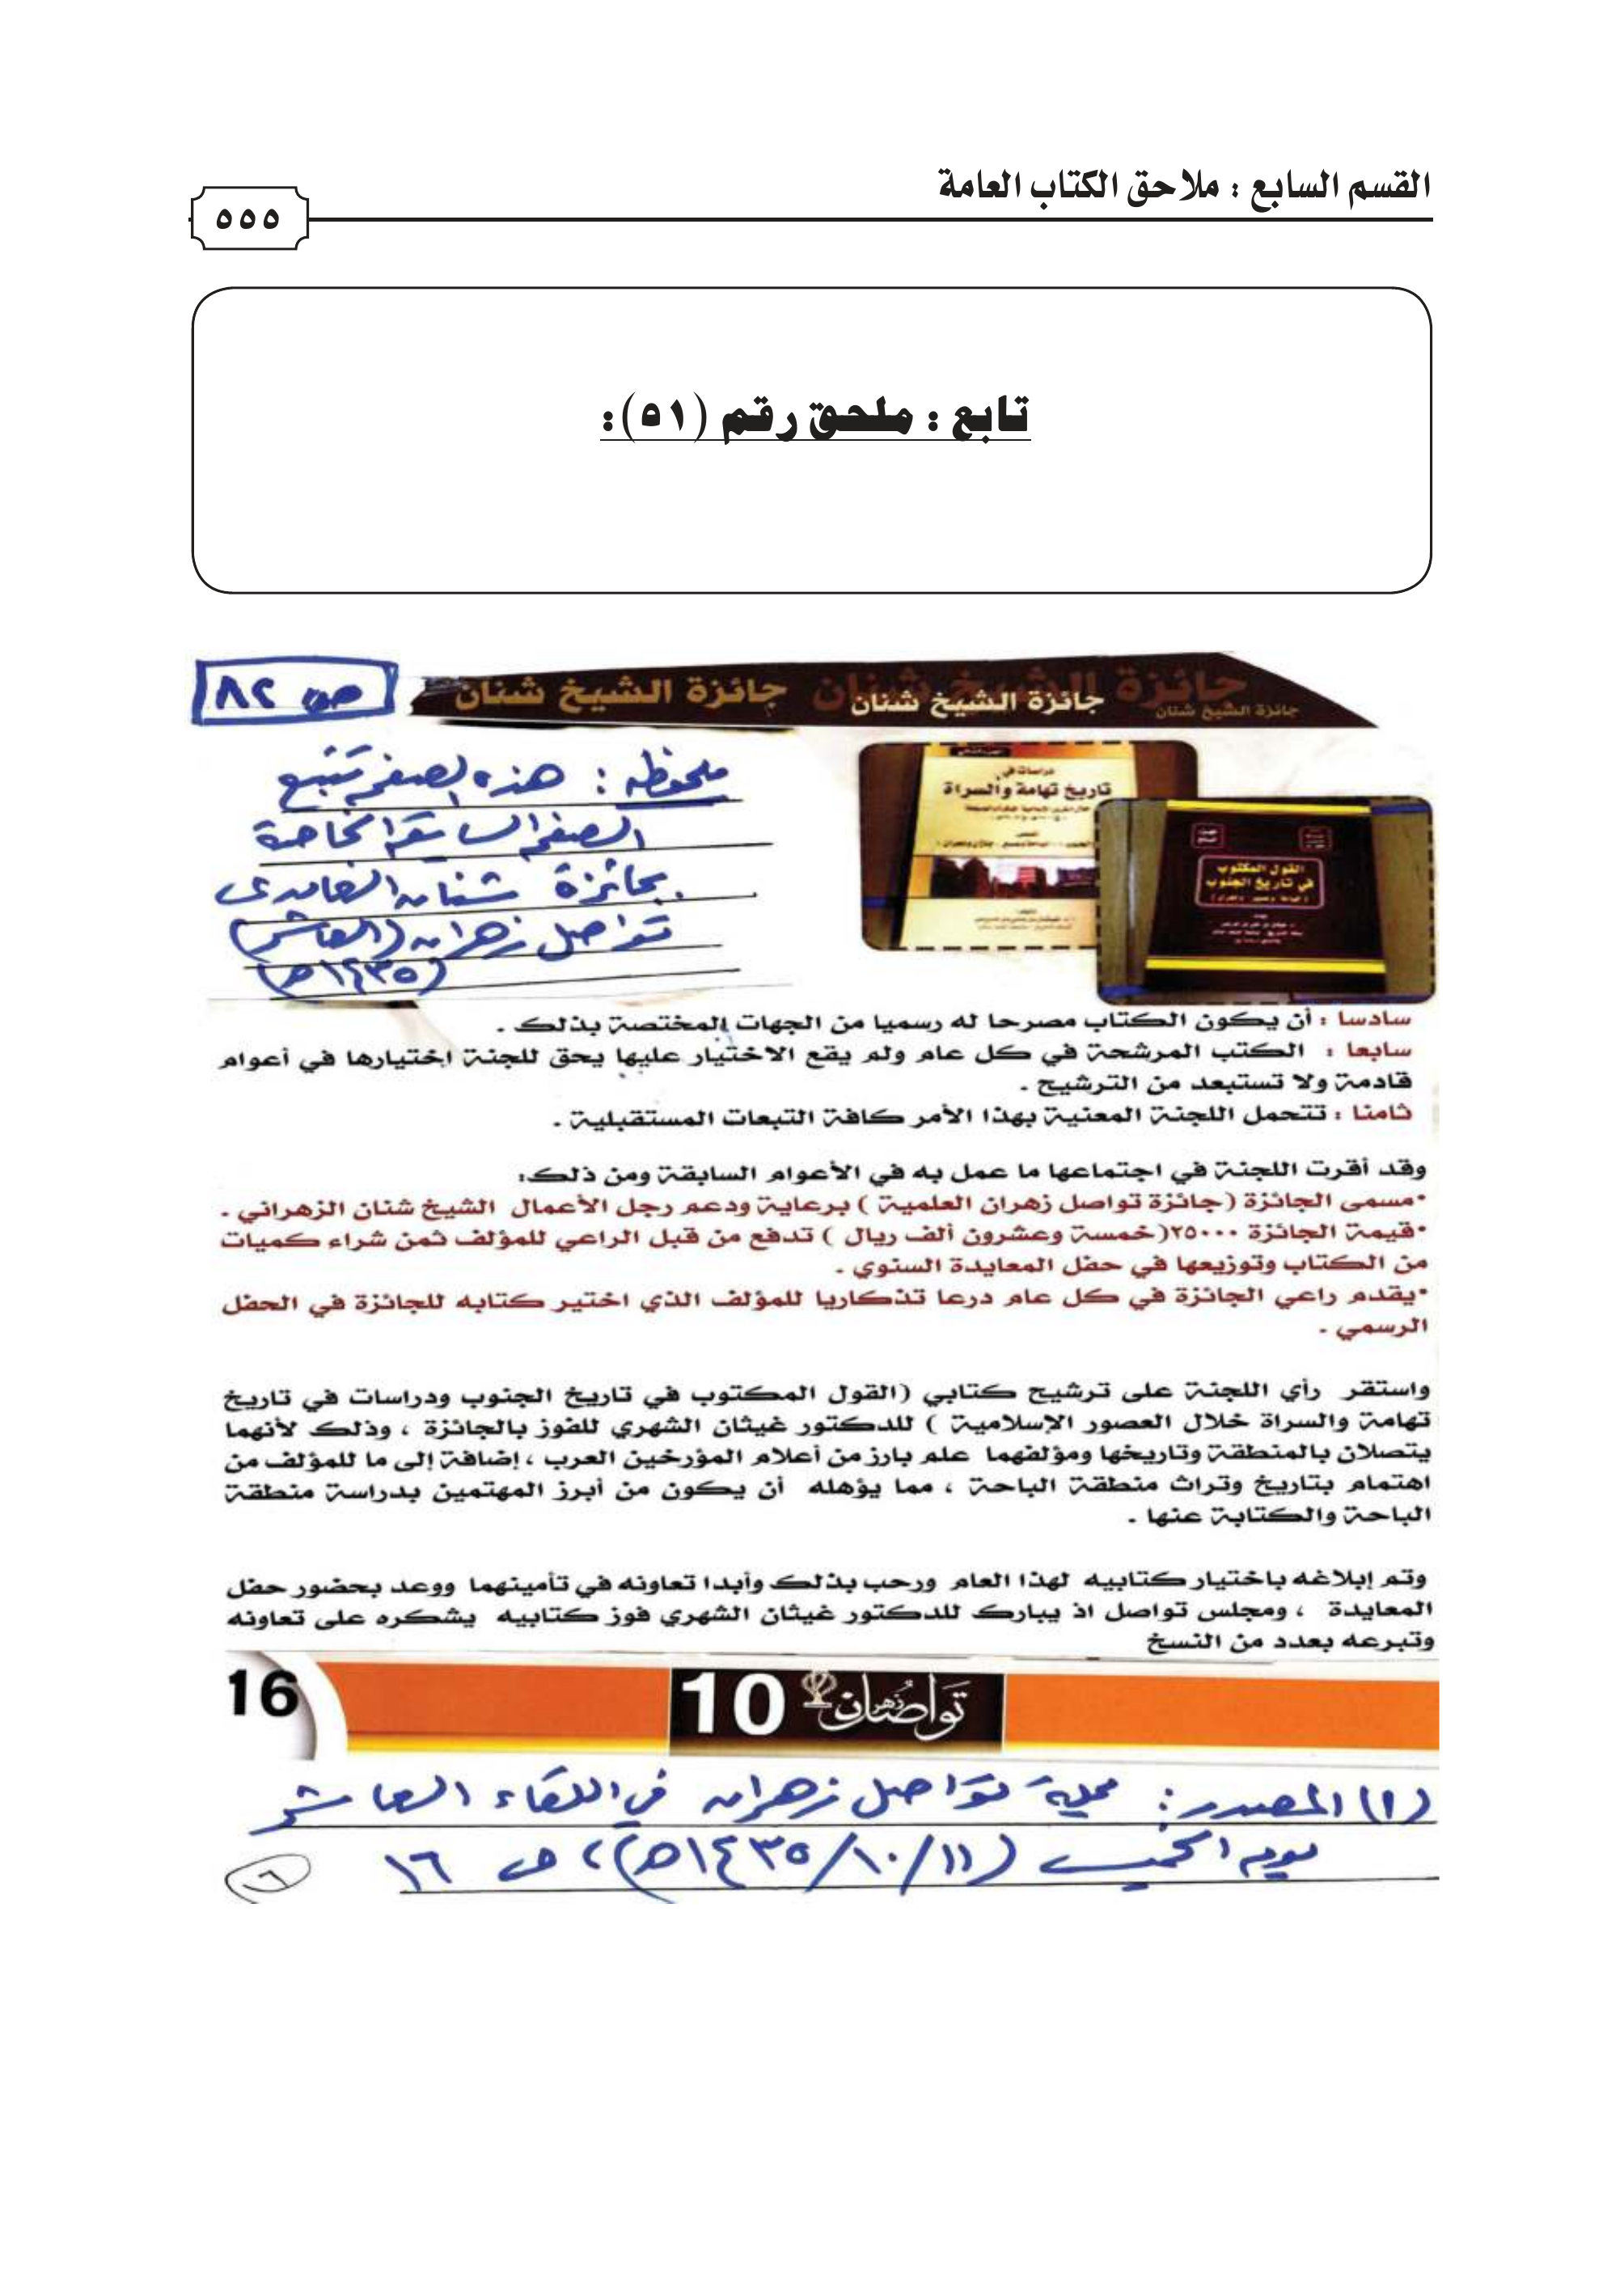 القسم السابع : ملاحق الكتاب العامة
٥٥٥
تابع : ملحق رقم (٥١):
جائزة الشيخ شنان
جائزة الشيخ شنان
جائزة الشيخ شنان
جائزة الشيخ شنان
ص ٨٢
ملحوظة : هذه الصفحة تتبع
الصفحة السابقة الخاصة
بجائزة شنان الغامدي
تواصل زهران (العاشر)
(١٤٣٥هـ)
دراسات في
تاريخ تهامة والسراة
القول المكتوب
في تاريخ الجنوب
سادسا : أن يكون الكتاب مصرحا له رسميا من الجهات المختصة بذلك .
سابعا : الكتب المرشحة في كل عام ولم يقع الاختيار عليها يحق للجنة اختيارها في أعوام
قادمة ولا تستبعد من الترشيح .
ثامنا : تتحمل اللجنة المعنية بهذا الأمر كافة التبعات المستقبلية .
وقد أقرت اللجنة في اجتماعها ما عمل به في الأعوام السابقة ومن ذلك:
•مسمى الجائزة (جائزة تواصل زهران العلمية ) برعاية ودعم رجل الأعمال الشيخ شنان الزهراني .
•قيمة الجائزة ٢٥٠٠٠(خمسة وعشرون ألف ريال ) تدفع من قبل الراعي للمؤلف ثمن شراء كميات
من الكتاب وتوزيعها في حفل المعايدة السنوي .
•يقدم راعي الجائزة في كل عام درعا تذكاريا للمؤلف الذي اختير كتابه للجائزة في الحفل
الرسمي .
واستقر رأي اللجنة على ترشيح كتابي (القول المكتوب في تاريخ الجنوب ودراسات في تاريخ
تهامة والسراة خلال العصور الإسلامية ) للدكتور غيثان الشهري للفوز بالجائزة ، وذلك لأنهما
يتصلان بالمنطقة وتاريخها ومؤلفهما علم بارز من أعلام المؤرخين العرب ، إضافة إلى ما للمؤلف من
اهتمام بتاريخ وتراث منطقة الباحة ، مما يؤهله أن يكون من أبرز المهتمين بدراسة منطقة
الباحة والكتابة عنها .
وتم إبلاغه باختيار كتابيه لهذا العام ورحب بذلك وأبدا تعاونه في تأمينهما ووعد بحضور حفل
المعايدة ، ومجلس تواصل اذ يبارك للدكتور غيثان الشهري فوز كتابيه يشكره على تعاونه
وتبرعه بعدد من النسخ
16
10
تواصل زهران
(١) المصدر : مجلة تواصل زهران في اللقاء العاشر
يوم الخميس (١١/١٠/١٤٣٥هـ)، ص ١٦
٦